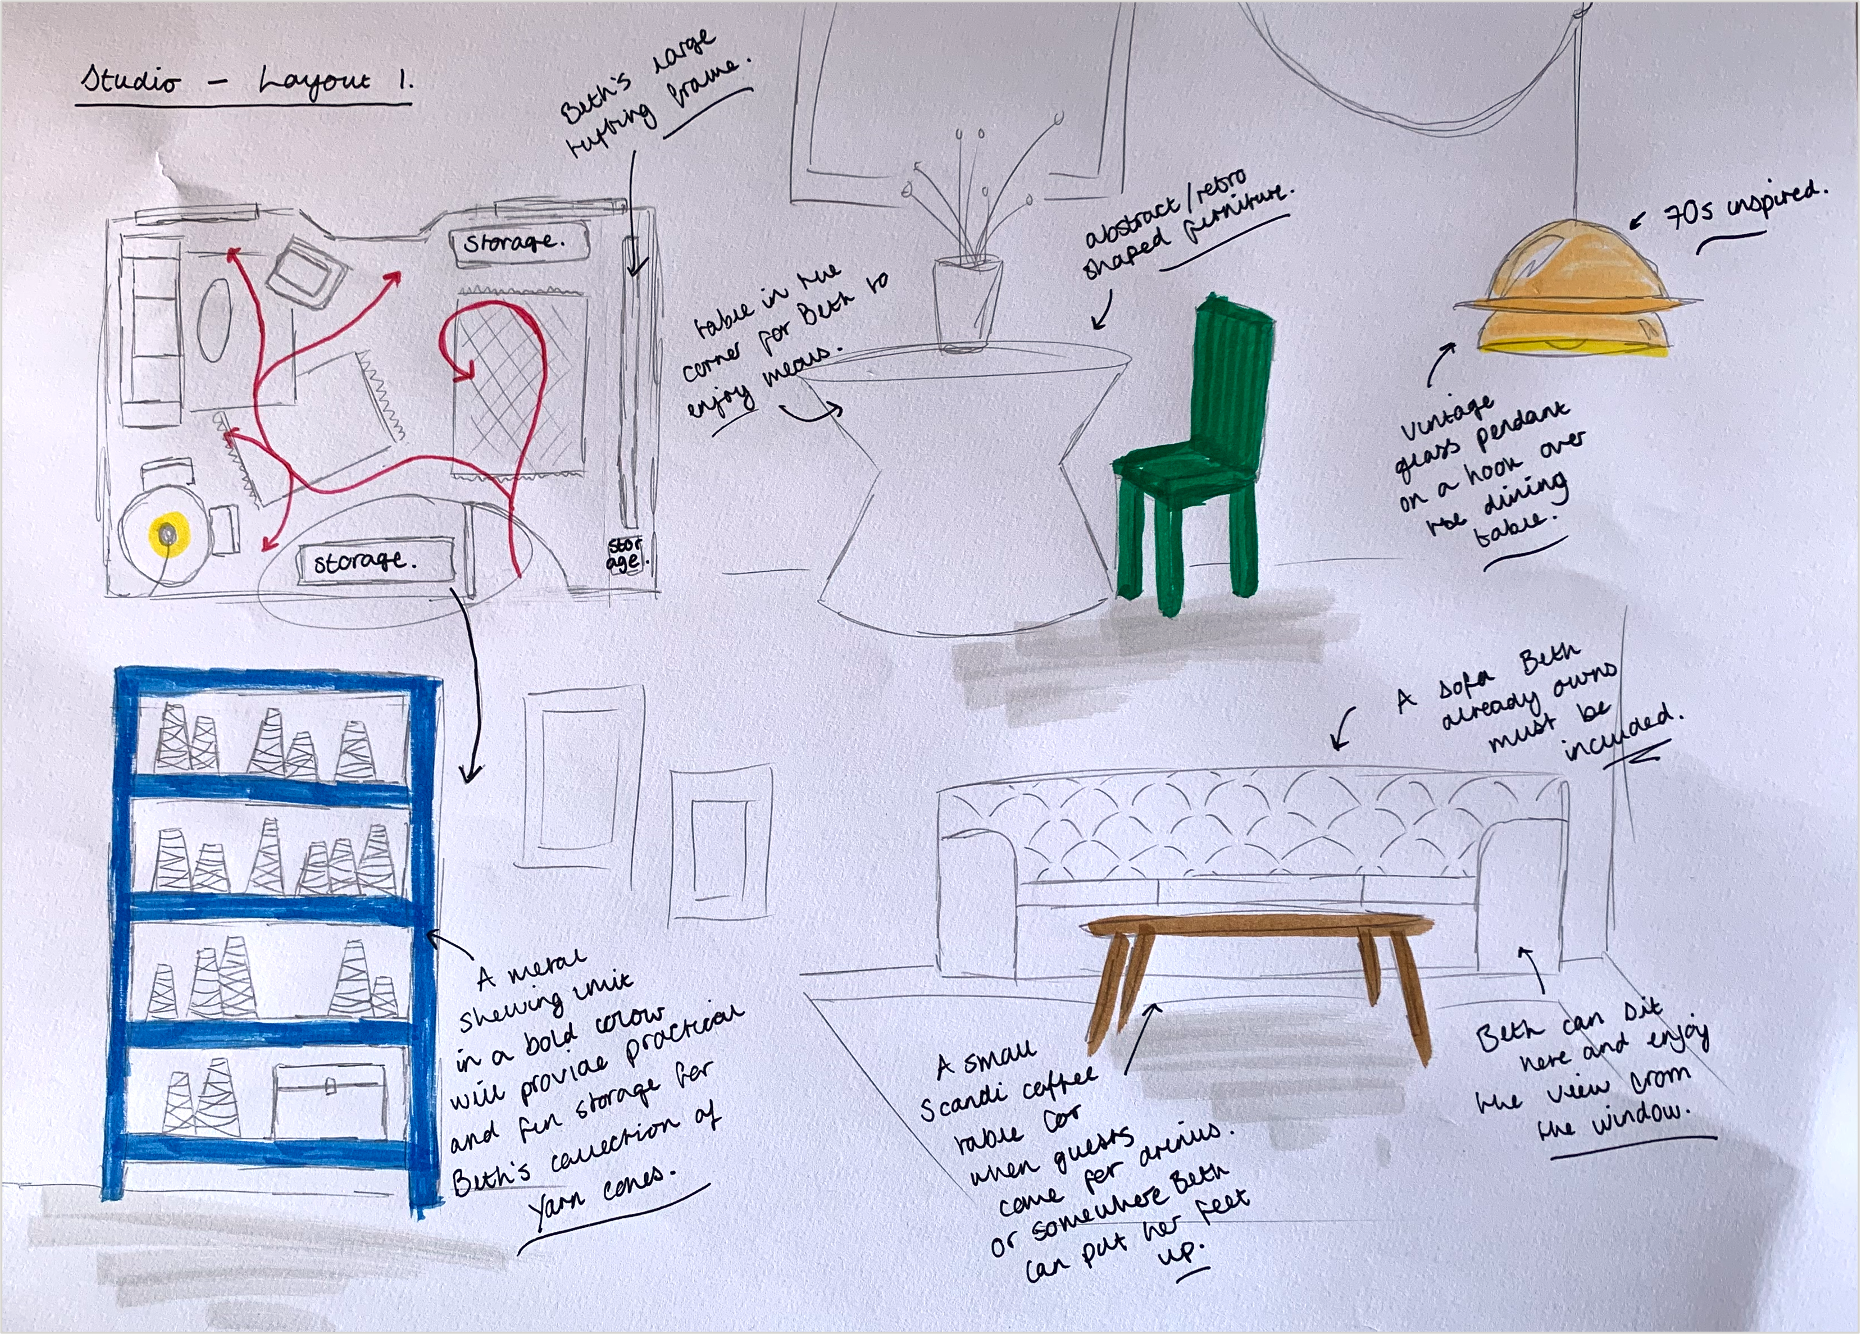 Studio - Layout 1.
Beth's large
tufting frame.
storage.
stor
age.
storage.
table in the
corner for Beth to
enjoy meals.
abstract/retro
shaped furniture.
70s inspired.
vintage
glass pendant
on a hook over
the dining
table.
A metal
shelving unit
in a bold colour
will provide practical
and fun storage for
Beth's collection of
Yarn cones.
A sofa Beth
already owns
must be
included.
A small
Scandi coffee
table for
when guests
come for drinks.
or somewhere Beth
can put her feet
up.
Beth can sit
here and enjoy
the view from
the window.